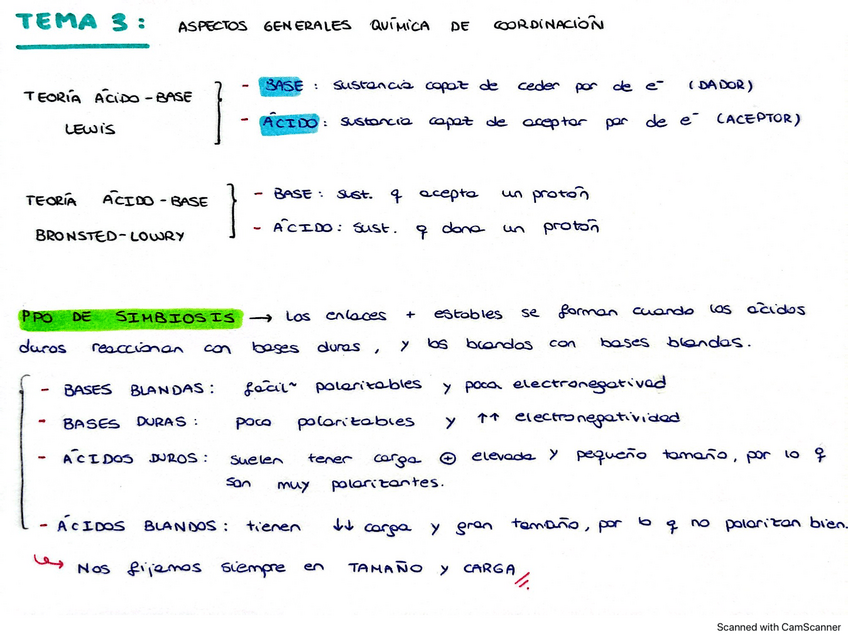 TEMA 3: ASPECTOS GENERALES QUÍMICA DE COORDINACIÓN
TEORÍA ÁCIDO-BASE
LEWIS
- BASE: sustancia capaz de ceder par de e⁻ (DADOR)
- ÁCIDO: sustancia capaz de aceptar par de e⁻ (ACEPTOR)
TEORÍA ÁCIDO-BASE
BRONSTED-LOWRY
- BASE: sust. q acepta un protón
- ÁCIDO: sust. q dona un protón
PPO DE SIMBIOSIS → Los enlaces + estables se forman cuando los ácidos
duros reaccionan con bases duras, y los blandos con bases blandas.
- BASES BLANDAS: fácil~ polarizables y poca electronegativad
- BASES DURAS: poco polarizables y ↑↑ electronegatividad
- ÁCIDOS DUROS: suelen tener carga ⊕ elevada y pequeño tamaño, por lo q
son muy polarizantes.
- ÁCIDOS BLANDOS: tienen ↓↓ carga y gran tamaño, por lo q no polarizan bien.
↪ Nos fijamos siempre en TAMAÑO y CARGA //
Scanned with CamScanner